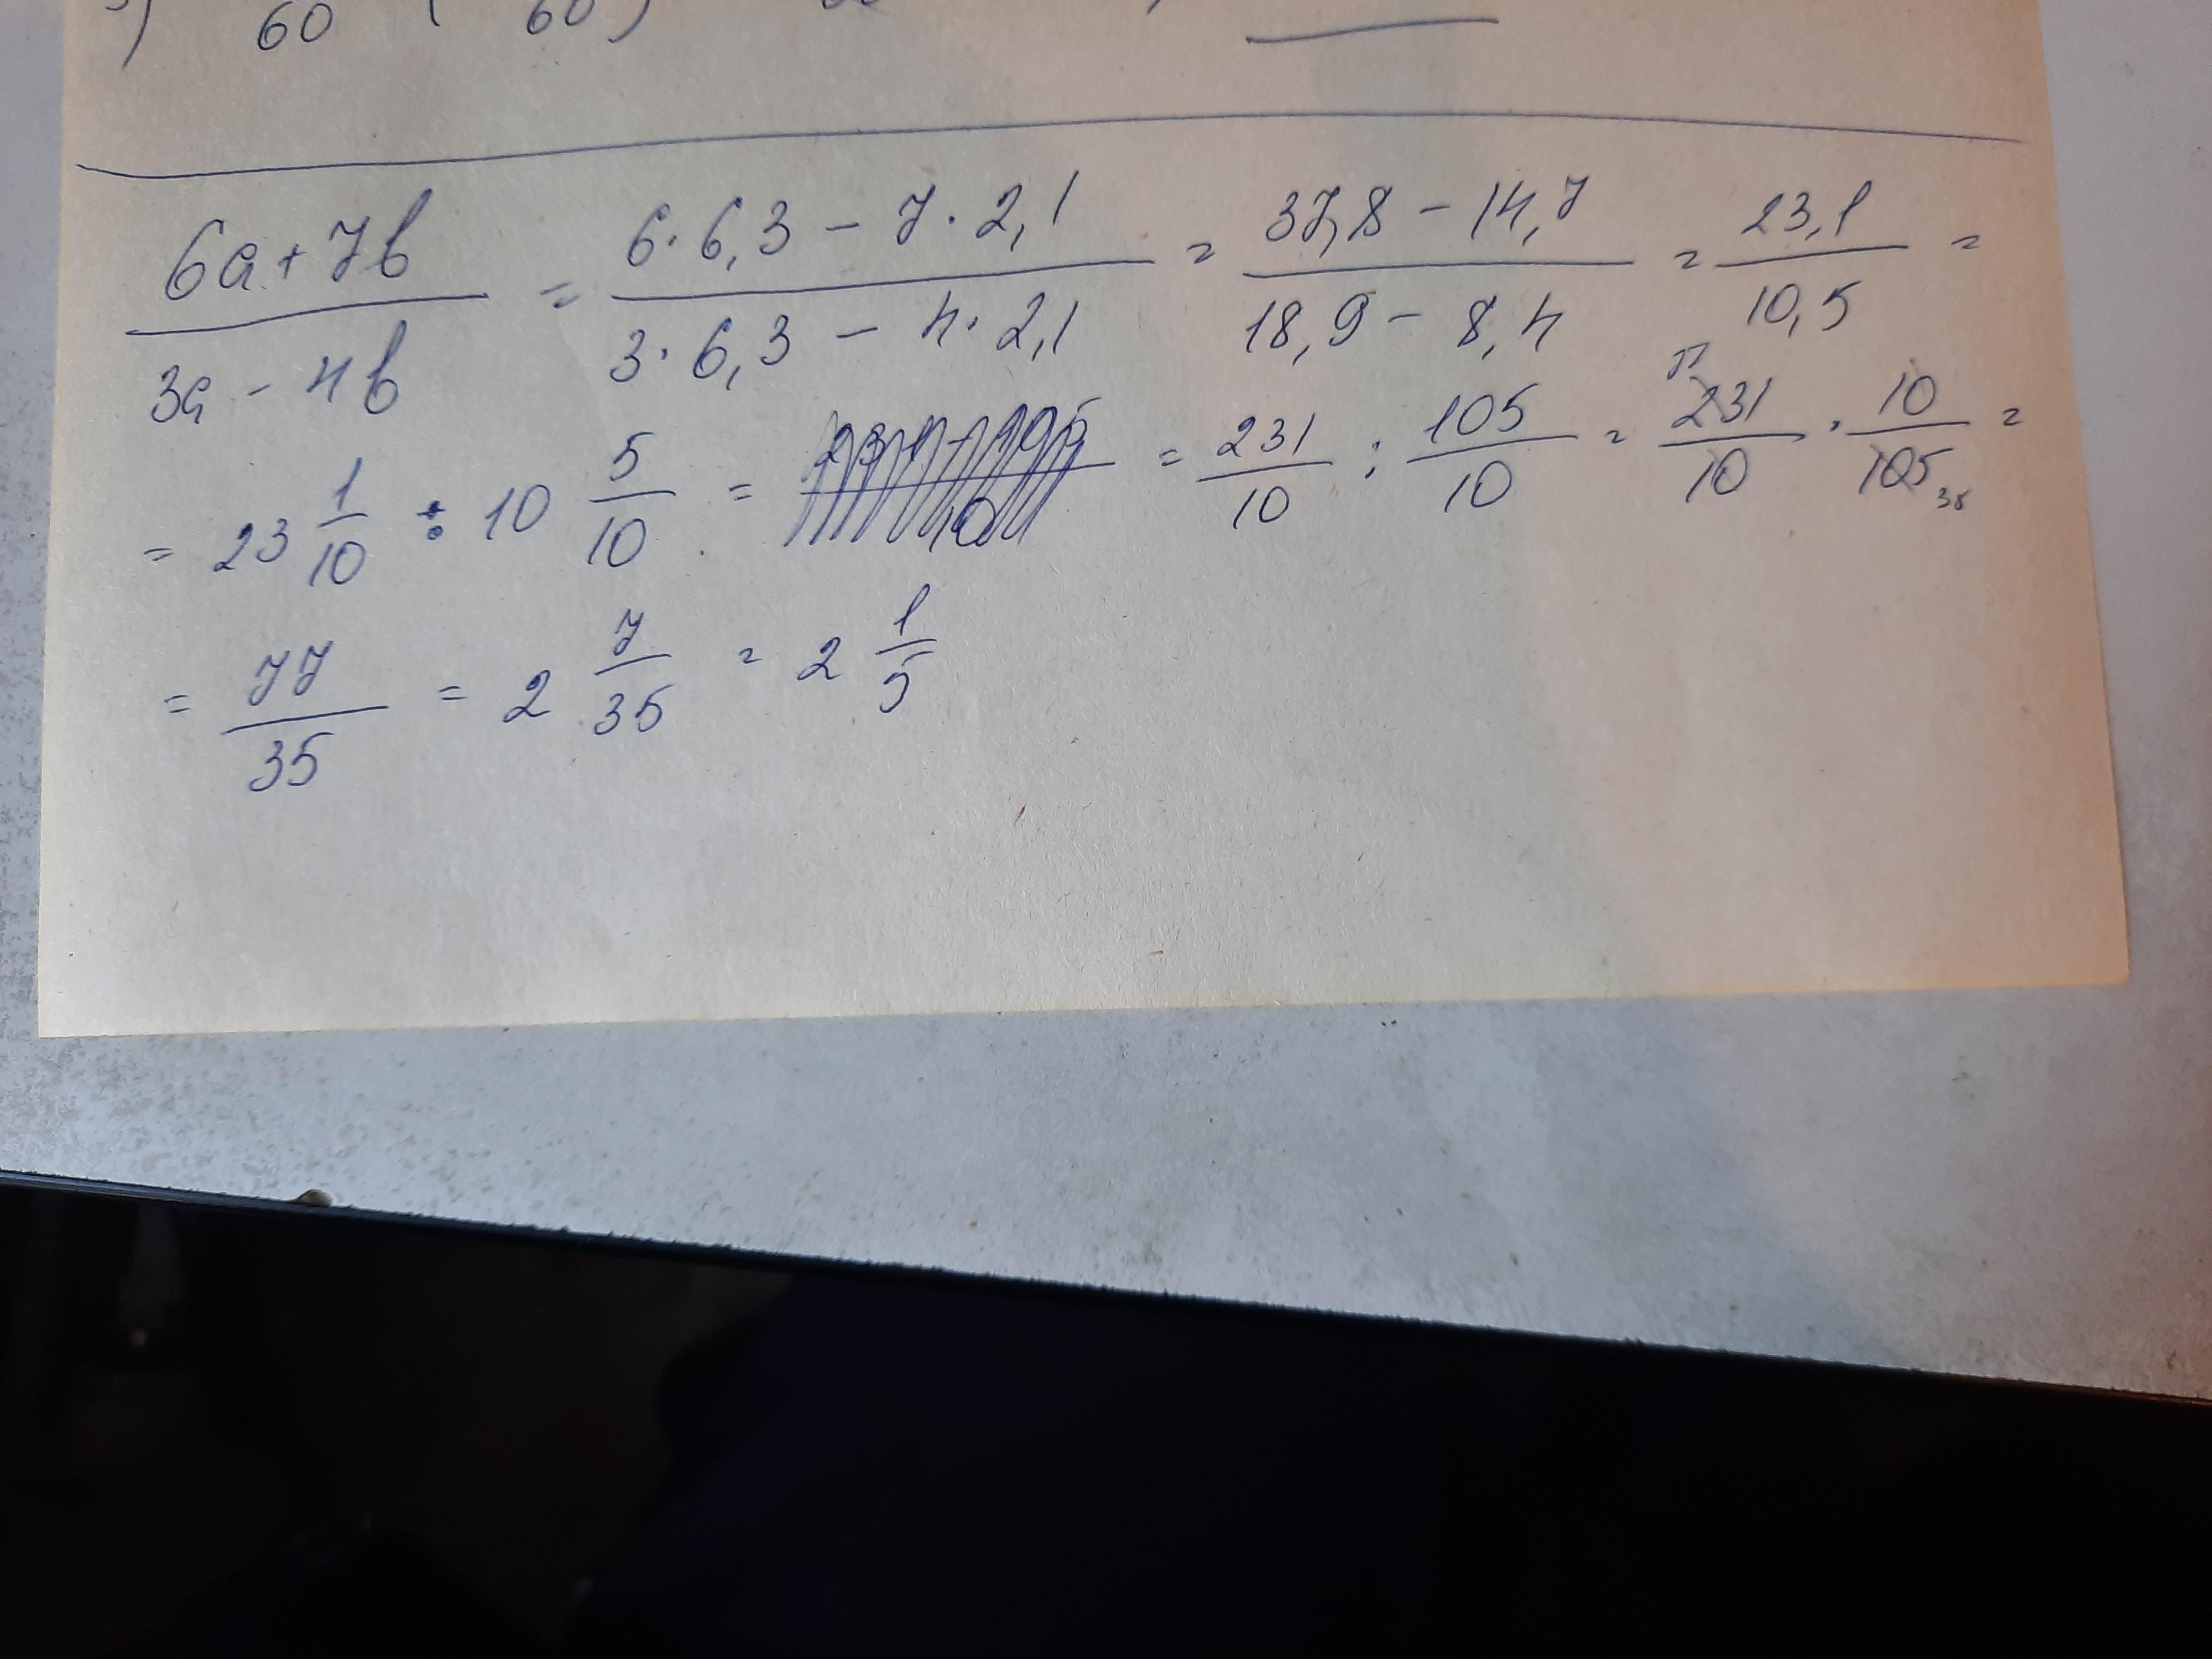 ) 60 ( 60 )
(6a + 7b)/(3a - 4b) = (6 · 6,3 - 7 · 2,1)/(3 · 6,3 - 4 · 2,1) = (37,8 - 14,7)/(18,9 - 8,4) = 23,1/10,5 =
= 23 1/10 : 10 5/10 = = 231/10 : 105/10 = 77 231/10 · 10/105 35 =
= 77/35 = 2 7/35 = 2 1/5